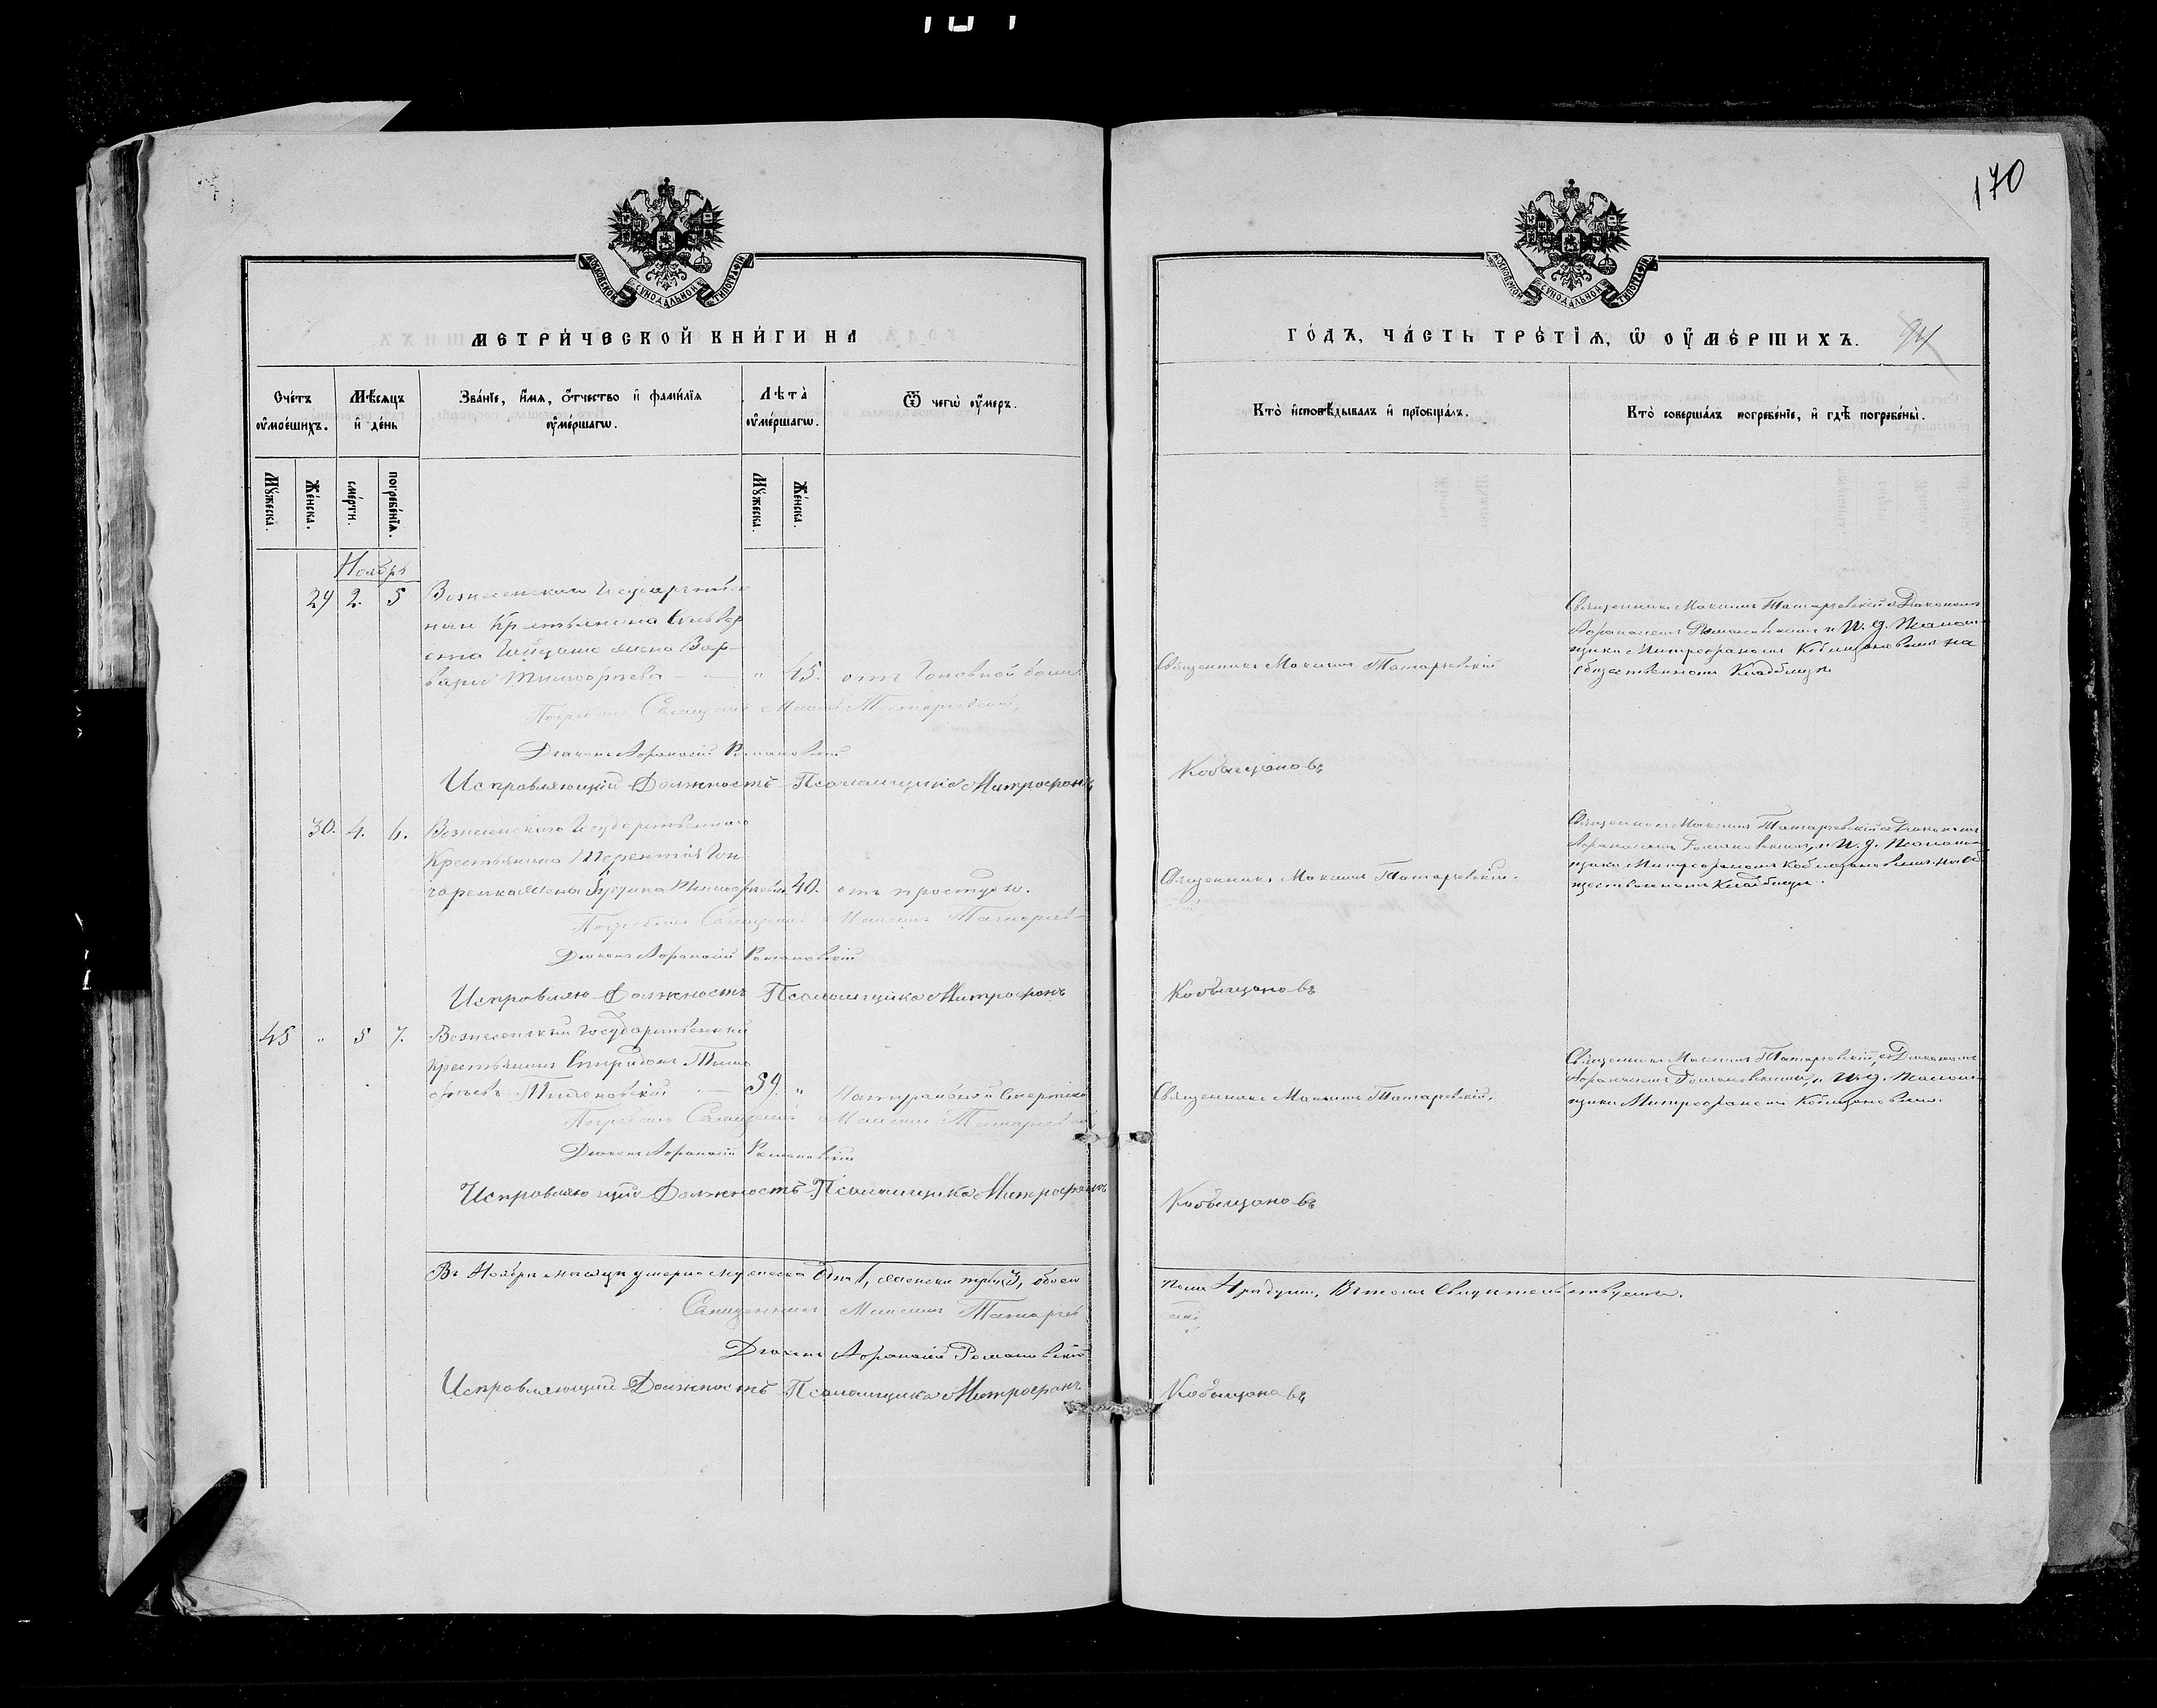 170
МОСКОВСКОЙ СѴНОДАЛЬНОЙ ТИПОГРАФІИ
МОСКОВСКОЙ СѴНОДАЛЬНОЙ ТИПОГРАФІИ
МЕТРИ́ЧЕСКОЙ КНИ́ГИ НА
ГО́ДЪ, ЧА́СТЬ ТРЕ́ТІѦ, Ѡ ОУ҆МЕ́РШИХЪ.
94
Сче́тъ оу҆ме́ршихъ.
Мѣ́сѧцъ и҆ де́нь
Зва́нїе, и҆́мѧ, ѻ҆́тчество и҆ фами́лїѧ оу҆ме́ршагѡ.
Лѣта̀ оу҆ме́ршагѡ.
Ѿ чегѡ̀ оу҆́меръ.
Кто̀ и҆сповѣ́дывалъ и҆ прїобща́лъ.
Кто̀ соверша́лъ погребе́нїе, и҆ гдѣ̀ погребе́ны.
Мꙋ́жеска.
Же́нска.
сме́рти.
погребе́нїѧ.
Мꙋ́жеска.
Же́нска.
Ноябрь
29 2. 5 Вознесенскаго Государствен
ная Крестьянина Сильвер
ста жена Вар-
вара Тимофеева — " 45. отъ головной боли
Священникъ Максимъ Татаревскій
Священникъ Максимъ Татаревскій съ Діакономъ
Афанасіемъ Романовскимъ и И. д. Псалом-
щика Митрофаномъ Кобыщановымъ на
общественномъ Кладбищѣ
Погребалъ Священникъ Максимъ Татаревскій,
Діаконъ Афанасій Романовскій
Исправляющій Должность Псаломщика Митрофанъ Кобыщановъ
30. 4. 6. Вознесенскаго Государственнаго
Крестьянина Терентія Гон
чаренка жена Тимофеева 40. отъ простуды.
Священникъ Максимъ Татаревскій.
Священникъ Максимъ Татаревскій съ Діакономъ
Афанасіемъ Романовскимъ, и И. д. Псалом-
щика Митрофаномъ Кобыщановымъ на об
щественномъ Кладбищѣ.
Погребалъ Священникъ Максимъ Татарев-
скій
Діаконъ Афанасій Романовскій
Исправляю Должность Псаломщика Митрофанъ Кобыщановъ
45 " 5 7. Вознесенскій Государственный
крестьянинъ Спиридонъ Тимо
феевъ — 59. " Натуральной Смертію
Священникъ Максимъ Татаревскій.
Священникъ Максимъ Татаревскій, съ Діакономъ
Афанасіемъ Романовскимъ, и И. д. Псалом-
щика Митрофаномъ Кобыщановымъ.
Погребалъ Священникъ Максимъ Татаревскій
Діаконъ Афанасій Романовскій
Исправляющій Должность Псаломщика Митрофанъ Кобыщановъ
Въ Ноябрѣ мѣсяцѣ умерло мужеска 1, женска 3, обоего
пола 4 души, Въ томъ Свидѣтельствуемъ.
Священникъ Максимъ Татарев
скій
Діаконъ Афанасій Романовскій
Исправляющій Должность Псаломщика Митрофанъ Кобыщановъ